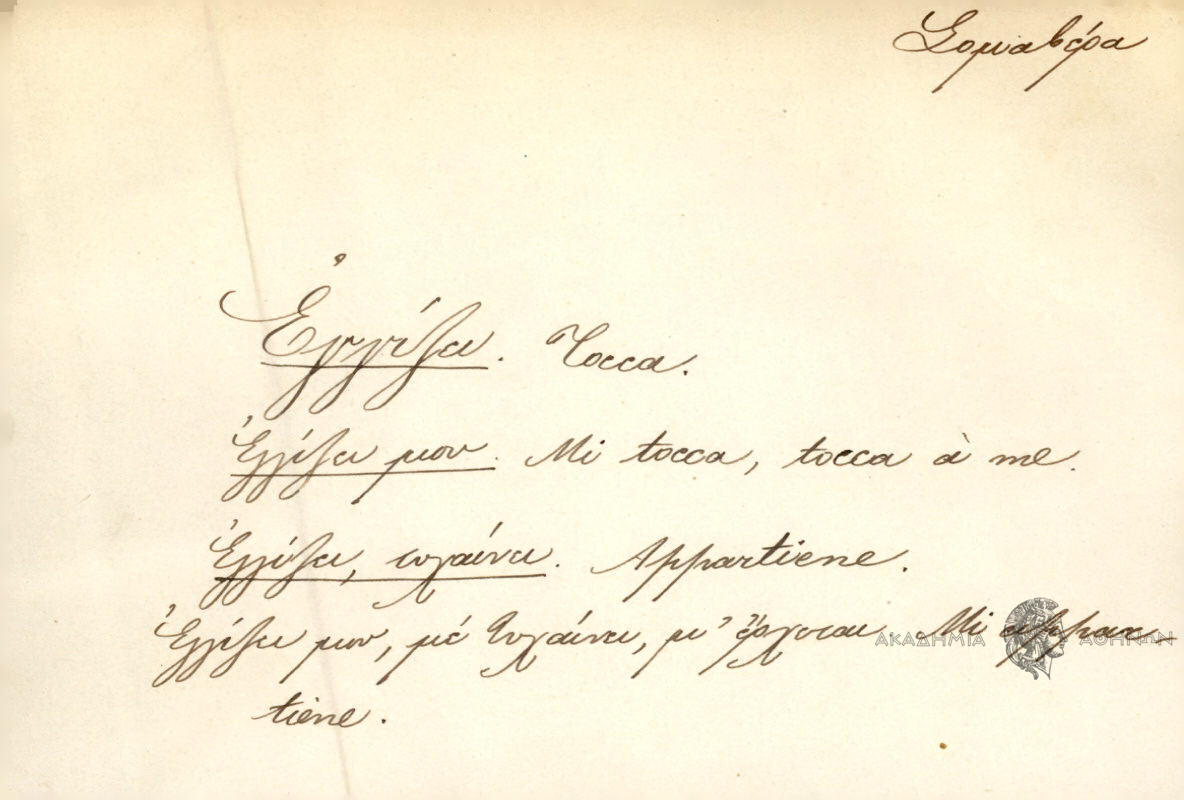 Σομαβέρα
Ἐγγίζει. Tocca.
Ἐγγίζει μου. Mi tocca, tocca à me.
Ἐγγίζει, τυχαίνει. Appartiene.
Ἐγγίζει μου, μέ τυχαίνει, μ' ἔρχεται Mi appar-
tiene.
ΑΚΑΔΗΜΙΑ ΑΘΗΝΩΝ